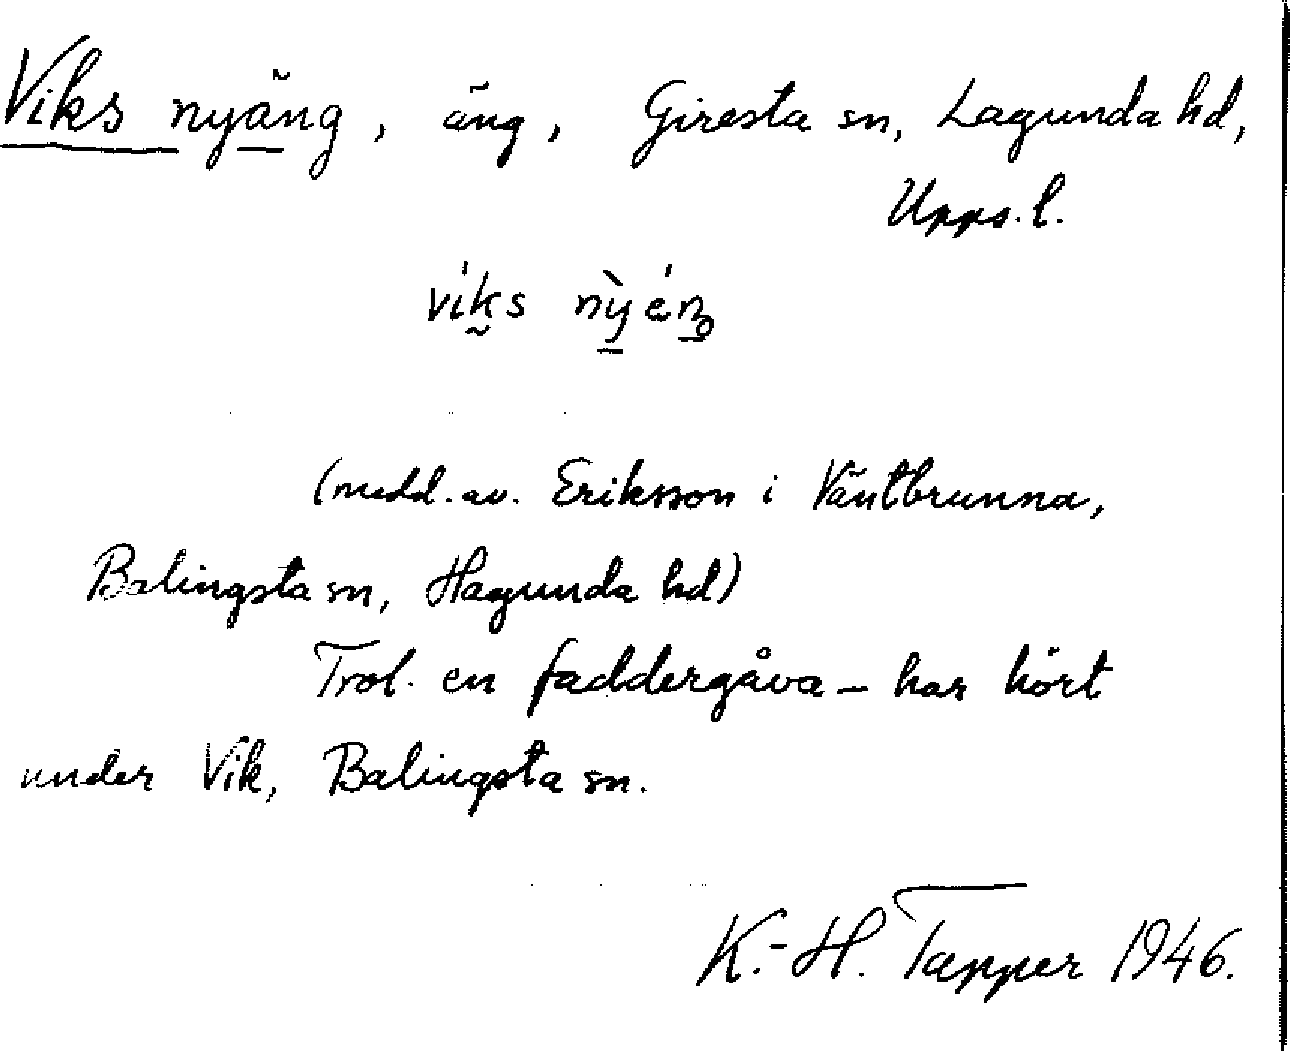 Viks nyäng, äng, Giresta sn, Lagunda hd,
Upps. l.
(medd. av. Eriksson i Väntbrunna,
Balingsta sn, Hagunda hd)
Trol. en faddergåva – har hört
under Vik, Balingsta sn.
K.-H. Tapper 1946.